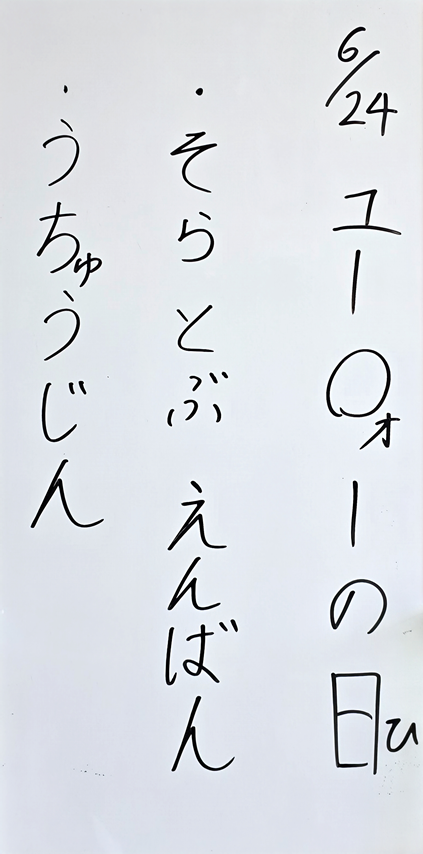 6/24 ユー〇ォーの日ひ
・そらとぶ えんばん
・うちゅうじん